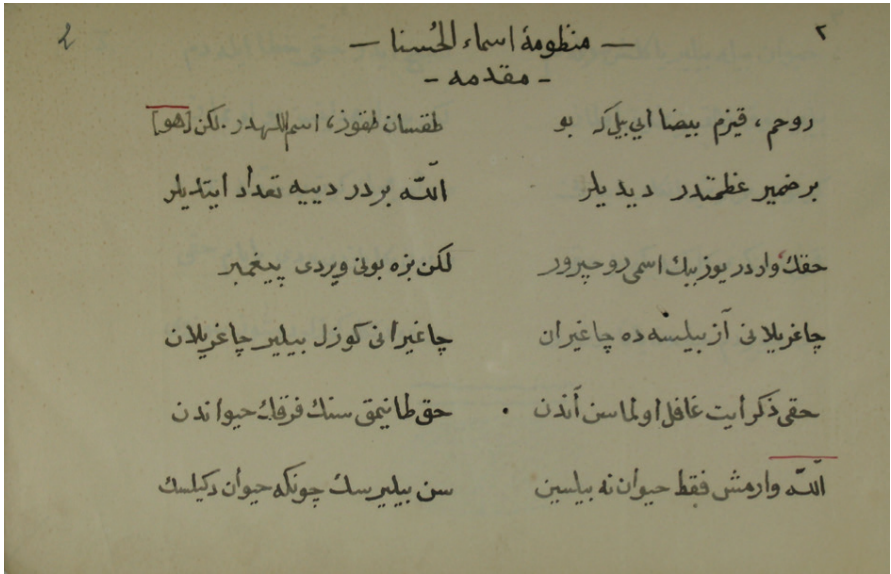 ٢
— منظومهٔ اسماء الحُسنا —
- مقدمه -
روحم، قیزم بیضا ایی بیل که بو طقسان طقوز، اسم اللهدر. لکن [هو]
بر ضمیر عظمتدر دیدیلر اللّٰه بردر دییه تعداد ایتدیلر
حقك واردر یوز بیك اسمی روحپرور لکن بزه بونی ویردی پیغمبر
چاغریلانی آز بیلسه ده چاغیران چاغیرانی کوزل بیلیر چاغریلان
حقی ذکر ایت غافل اولماسن آندن حق طانیمق سنك فرقك حیواندن
اللّٰه وارمش فقط حیوان نه بیلسین سن بیلیرسك چونکه حیوان دکیلسك